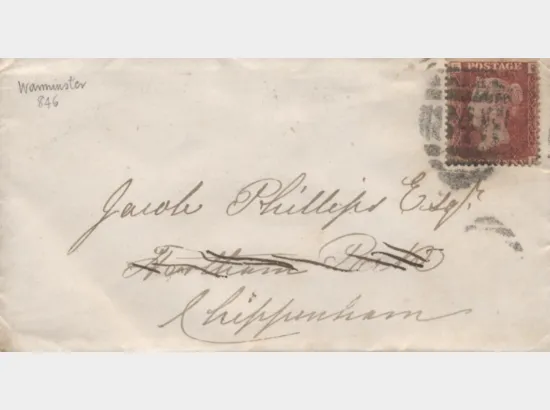 Warminster
846
POSTAGE
Jacob Phillips Esqr
Chippenham